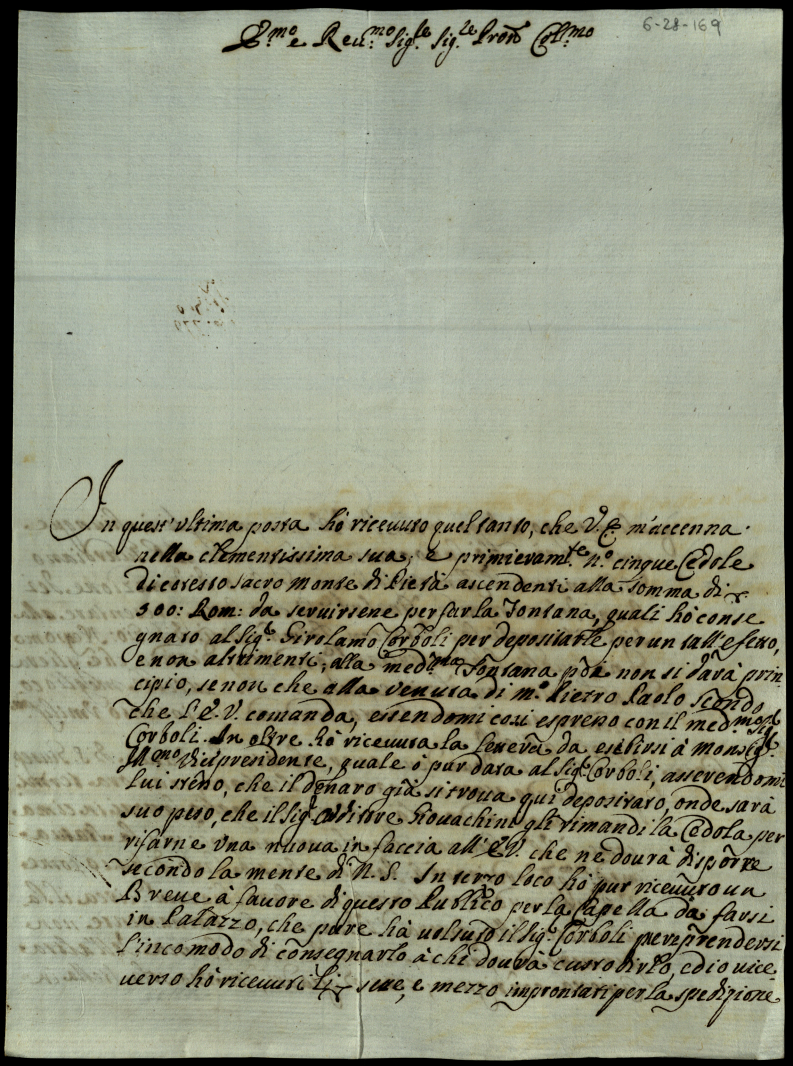 6-28-169
E.mo e Reu.mo Sig.re Sig.re Pron Col.mo
In quest'vltima posta hò riceuuto quel tanto, che V.E. m'accenna
nella clementissima sua; e primieram.te n.o cinque Cedole
di cotesto sacro Monte di Pietà ascendenti alla somma di
500: Rom: da seruirsene per far la Fontana, quali hò conse
gnato al Sig.r Girolamo Corboli per depositarle per un tall'efetto,
e non altrimenti; alla med.ma Fontana pda non si darà prin=
cipio, se non che alla venuta di m.o Pietro Paolo secondo
che l'E.V. comanda, essendomi così espreno con il med.mo Sig.r
Corboli. In oltre hò riceuuta la lettera da esibirsi à Mons.r
Ill.mo Vicepresidente, quale ò pur data al Sig.r Corboli, asserendomi
lui steno, che il denaro già si troua qui depositato, onde sarà
suo peso, che il Sig.r Auditore Giouachini gli rimandi la Cedola per
rifarne vna nuoua in faccia all'E.V. che ne dourà disporre
secondo la mente di N.S. In terzo loco hò pur riceuuto un
Breue à fauore di questo Publico per la Capella da farsi
in Palazzo, che pure hà uolsuto il Sig.r Corboli per prendersi
l'incomodo di consegnarlo à chi dourà custodirlo, ed io uice
uerso hò riceuuti li sette, e mezzo improntati per la spedizione